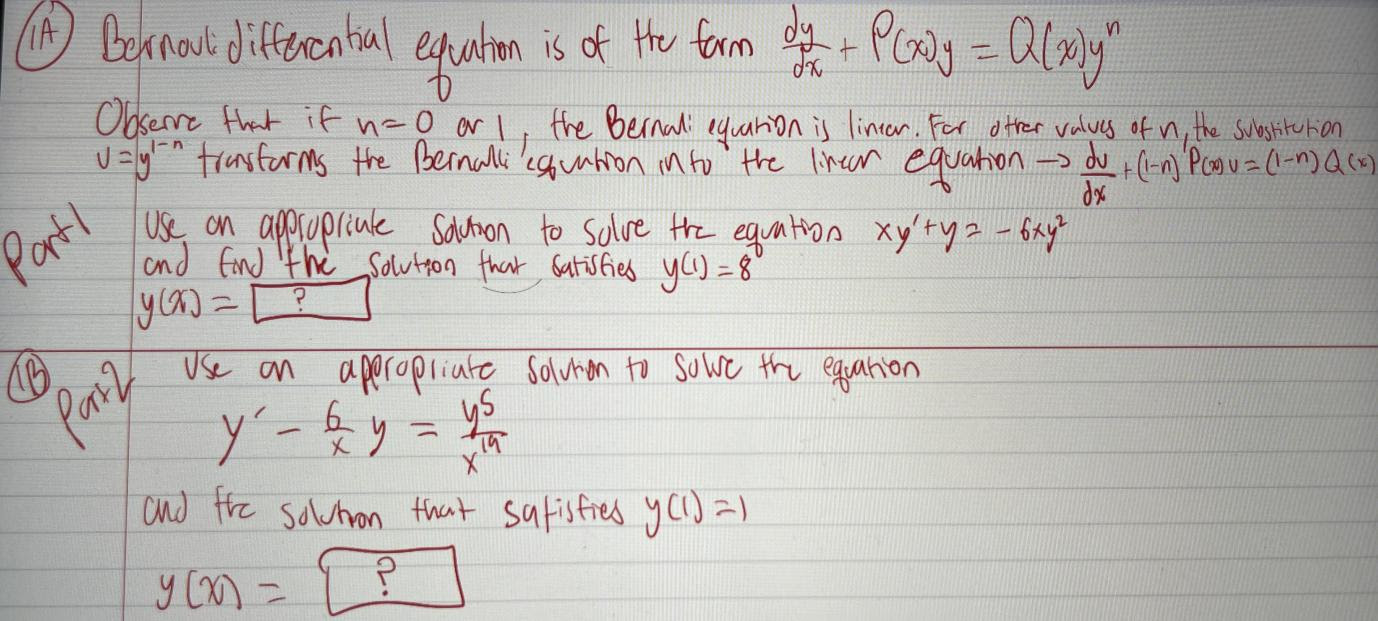 1A Bernouli differential equation is of the form dy/dx + P(x)y = Q(x)y^n
Observe that if n=0 or 1, the Bernouli equation is linear. For other values of n, the substitution
u=y^1-n transforms the Bernoulli equation into the linear equation → du/dx + (1-n)P(x)u=(1-n)Q(x)
Part 1
Use an appropriate solution to solve the equation xy'+y = -6xy²
and find the solution that satisfies y(1)=8
y(x) = ?
1B Part 2
Use an appropriate solution to solve the equation
y' - 6/x y = y^5/x^19
and the solution that satisfies y(1)=1
y(x) = ?